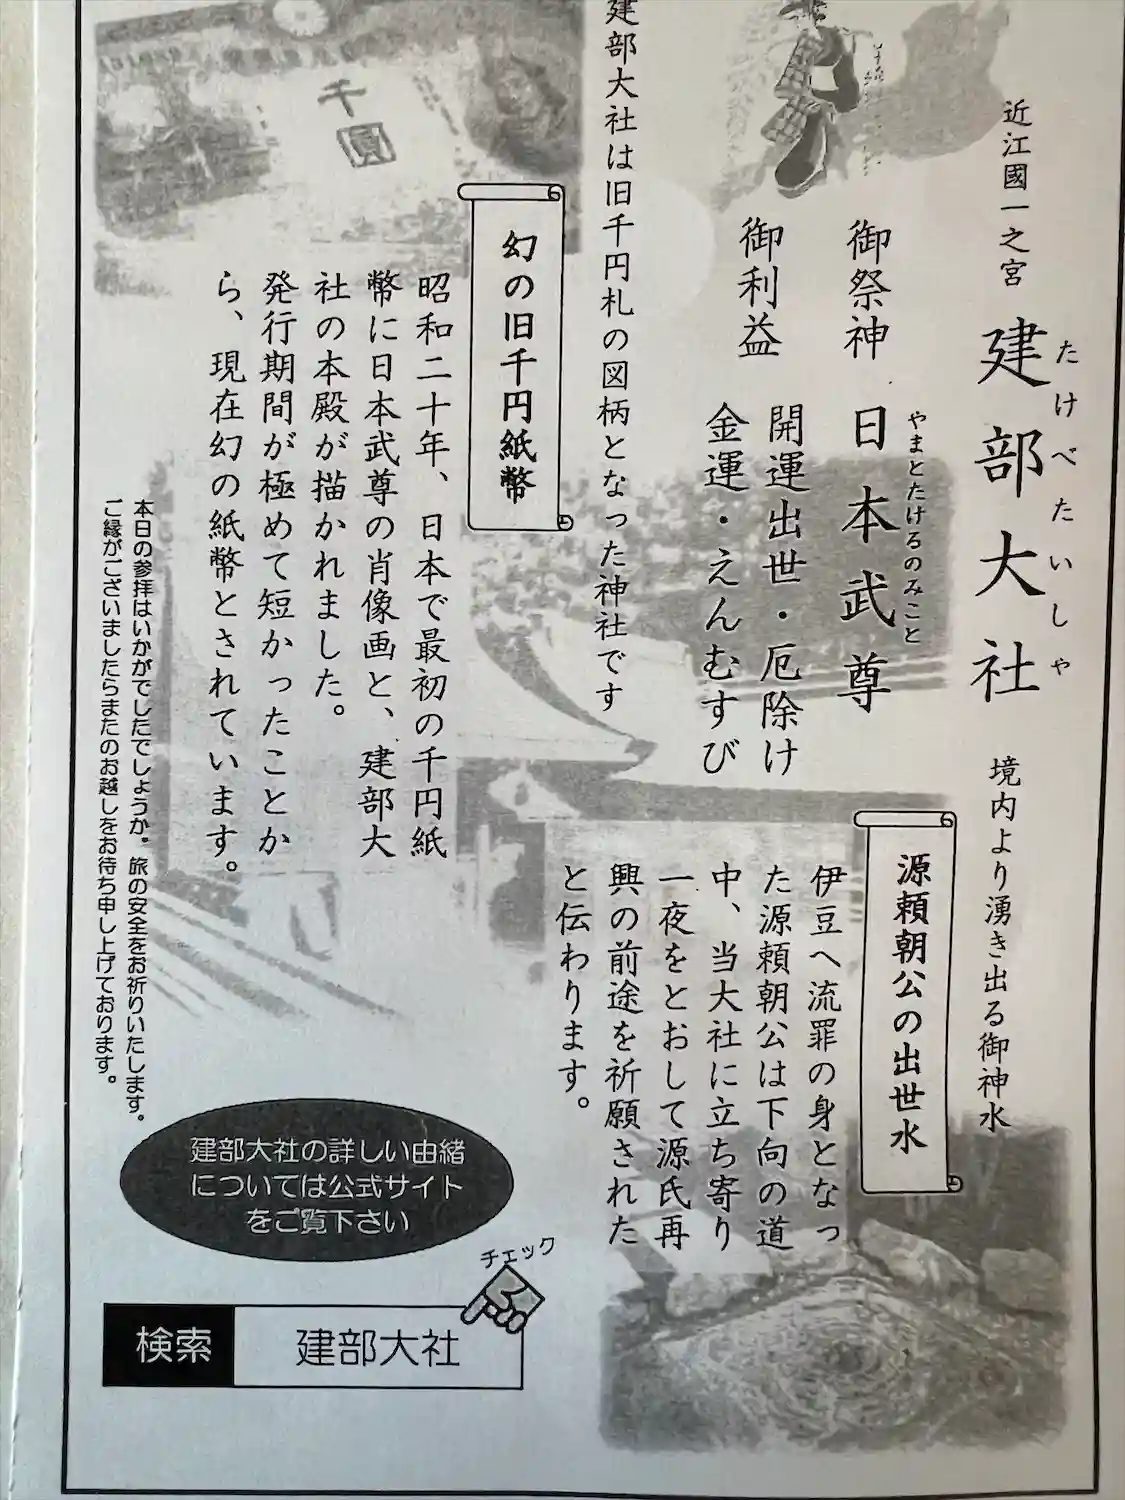 近江國一之宮
建部大社
たけべたいしゃ
御祭神
日本武尊
やまとたけるのみこと
御利益
開運出世・厄除け
金運・えんむすび
建部大社は旧千円札の図柄となった神社です
千
圓
幻の旧千円紙幣
昭和二十年、日本で最初の千円紙
幣に日本武尊の肖像画と、建部大
社の本殿が描かれました。
発行期間が極めて短かったことか
ら、現在幻の紙幣とされています。
境内より湧き出る御神水
源頼朝公の出世水
伊豆へ流罪の身となっ
た源頼朝公は下向の道
中、当大社に立ち寄り
一夜をとおして源氏再
興の前途を祈願された
と伝わります。
本日の参拝はいかがでしたでしょうか。旅の安全をお祈りいたします。
ご縁がございましたらまたのお越しをお待ち申し上げております。
建部大社の詳しい由緒
については公式サイト
をご覧下さい
チェック
検索
建部大社